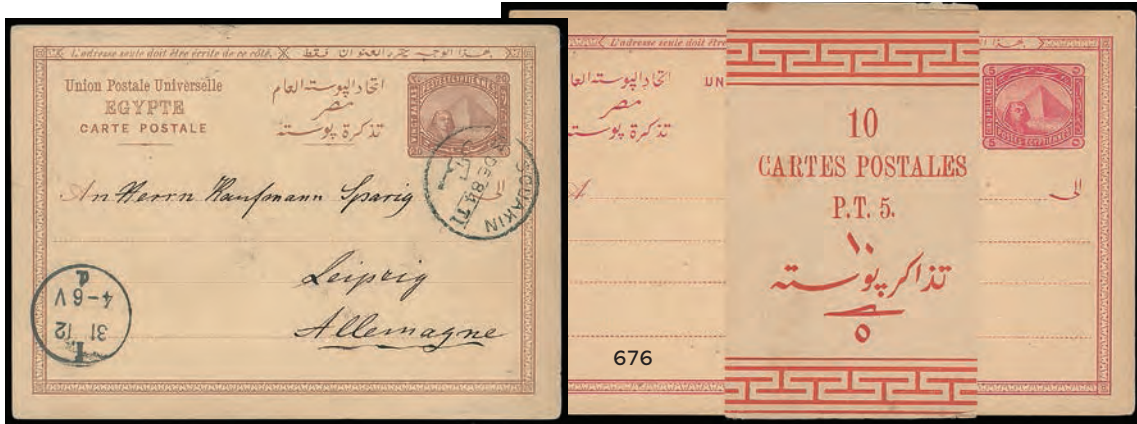 L'adresse seule doit être écrite de ce côté. بهذا الوجه يحرر العنوان فقط
Union Postale Universelle
EGYPTE
CARTE POSTALE
اتحاد البوسته العام
مصر
تذكرة بوسته
An Herrn Kaufmann Sparig
الى
Leipzig
Allemagne
SOUAKIN
84 TI
31 12
4-6 V
L'adresse seule doit être
بهذا الوجه
اتحاد البوسته العا
مصر
تذكرة بوسته
UN
A
الى
5 5
10
CARTES POSTALES
P.T. 5.
١٠
تذاكر بوسته
٥
676